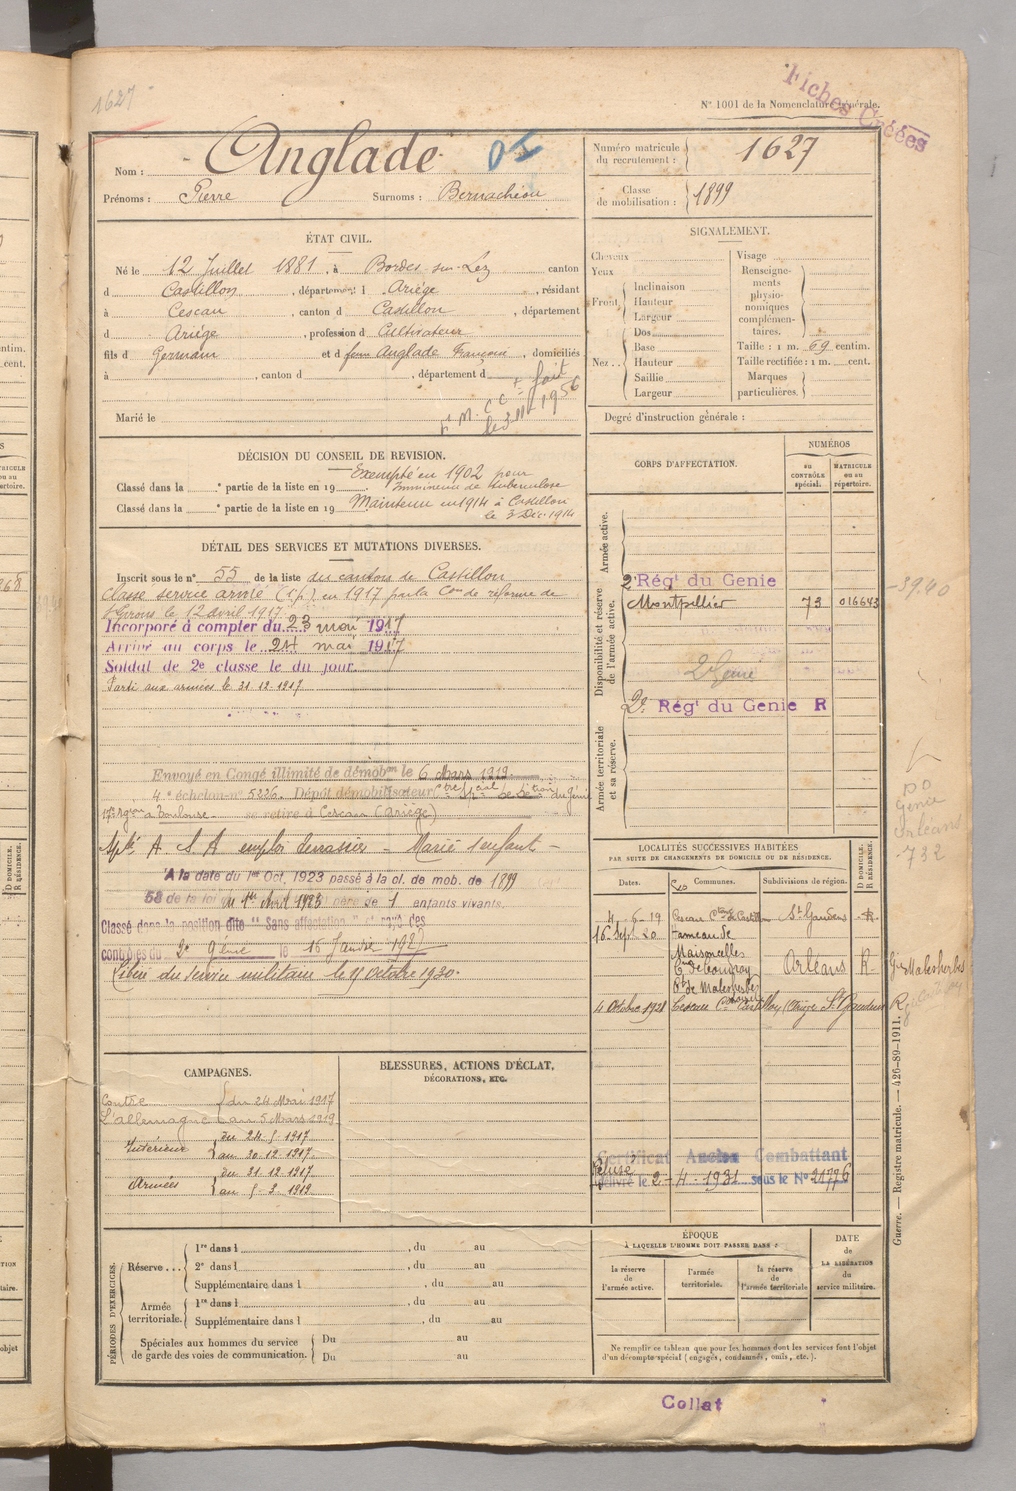 1627
Fiches Créées
N° 1001 de la Nomenclature générale.
Nom : Anglade
Prénoms : Pierre Surnoms : Bernachéou
Numéro matricule du recrutement : 1627
Classe de mobilisation : 1899
ÉTAT CIVIL.
Né le 12 Juillet 1881, à Bordes-sur-Lez canton
d Castillon, département d Ariège, résidant
à Cescau, canton d Castillon, département
d Ariège, profession d Cultivateur
fils d Germain et d feue Anglade Françoise, domiciliés
à , canton d , département d
Marié le
fait
le 3 11 1956
SIGNALEMENT.
Cheveux
Yeux
Front
Inclinaison
Hauteur
Largeur
Nez . .
Dos
Base
Hauteur
Saillie
Largeur
Visage
Renseignements physionomiques complémentaires.
Taille : 1 m. 69 centim.
Taille rectifiée : 1 m. cent.
Marques particulières.
Degré d'instruction générale :
DÉCISION DU CONSEIL DE REVISION.
Exempté en 1902 pour
imminence de tuberculose
Classé dans la e partie de la liste en 19
Maintenu en 1914 à Castillon
Classé dans la e partie de la liste en 19
le 3 Déc. 1914
DÉTAIL DES SERVICES ET MUTATIONS DIVERSES.
Inscrit sous le n° 55 de la liste du canton de Castillon
Classé service armé en 1917 par la Con de réforme de
St Girons le 12 avril 1917
Incorporé à compter du 23 mai 1917
Arrivé au corps le 24 mai 1917
Soldat de 2e classe le du jour
Parti aux armées le 31.12.1917
Envoyé en Congé illimité de démobon le 6 Mars 1919.
4e échelon n° 5226. Dépôt démobilisateur du Génie
17e Région à Toulouse - se retire à Cescau (Ariège)
A. S. A emploi terrassier - Marié 1 enfant -
A la date du 1er Oct. 1923 passé à la cl. de mob. de 1899
58 de la loi du 1er Avril 1923 père de 1 enfants vivants.
Classé dans la position dite "Sans affectation" et rayé des
contrôles du 2e Génie le 15 Janvier 1927
Libéré du service militaire le 11 octobre 1930.
CORPS D'AFFECTATION.
NUMÉROS
au CONTRÔLE spécial.
MATRICULE ou au répertoire.
Armée active.
Disponibilité et réserve de l'armée active.
Armée territoriale et sa réserve.
2e Régt du Genie
Montpellier 73 016643
3940
2e Génie
2e Régt du Genie R
Génie
Orléans
732
LOCALITÉS SUCCESSIVES HABITÉES
PAR SUITE DE CHANGEMENTS DE DOMICILE OU DE RÉSIDENCE.
Dates. Communes. Subdivisions de région.
D DOMICILE. R RÉSIDENCE.
4-6-19 Cescau Cton de Castillon St Gaudens R
16 Sept 20 Hameau de
Maisoncelles
Cne de Coudray
Cton de Malesherbes
Loiret
Orléans R Gie Malesherbes
4 Octobre 1921 Cescau Cton Castillon (Ariège) St Gaudens R
CAMPAGNES.
Contre L'allemagne du 24 Mai 1917 au 5 Mars 1919
Intérieur du 24.5.1917 au 30.12.1917
Armées du 31.12.1917 au 5.3.1919
BLESSURES, ACTIONS D'ÉCLAT, DÉCORATIONS, ETC.
Certificat Ancien Combattant
Refusé
délivré le 2-4-1931 sous le N° 21776
Guerre. — Registre matricule. — 426-89-1911.
PÉRIODES D'EXERCICES.
Réserve . . .
1re dans l , du au
2e dans l , du au
Supplémentaire dans l , du au
Armée territoriale.
1re dans l , du au
Supplémentaire dans l , du au
Spéciales aux hommes du service de garde des voies de communication.
Du au
Du au
ÉPOQUE
À LAQUELLE L'HOMME DOIT PASSER DANS :
la réserve de l'armée active.
l'armée territoriale.
la réserve de l'armée territoriale
DATE de LA LIBÉRATION du service militaire.
Ne remplir ce tableau que pour les hommes dont les services font l'objet
d'un décompte spécial (engagés, condamnés, omis, etc.).
Collat